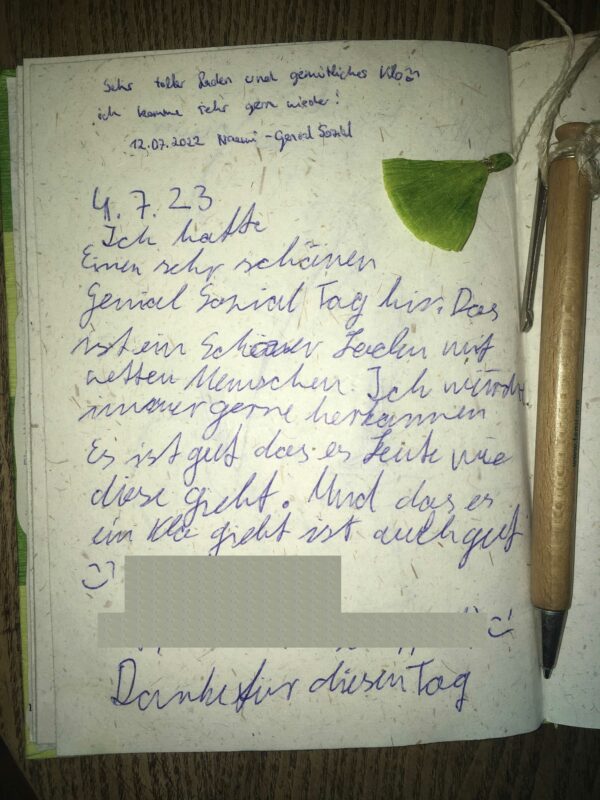 Sehr toller Laden und gemütliches Klo :)
ich komme sehr gern wieder!
12.07.2022 Naemi - Genial Sozial
4.7.23
Ich hatte
Einen sehr schönen
Genial Sozial Tag hir. Das
ist ein Laden mit
netten Menschen. Ich würde
immer gerne herkammen
Es ist gut das es Leute wie
diese giebt. Und das es
ein Klo giebt ist auch gut
:)
:)
Danke für diesen Tag